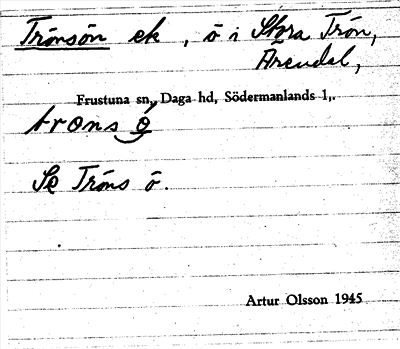 Trönsön ek, ö i Stora Trön,
Årendal,
Frustuna sn, Daga hd, Södermanlands l,.
trons ö́
Se Tröns ö.
Artur Olsson 1945